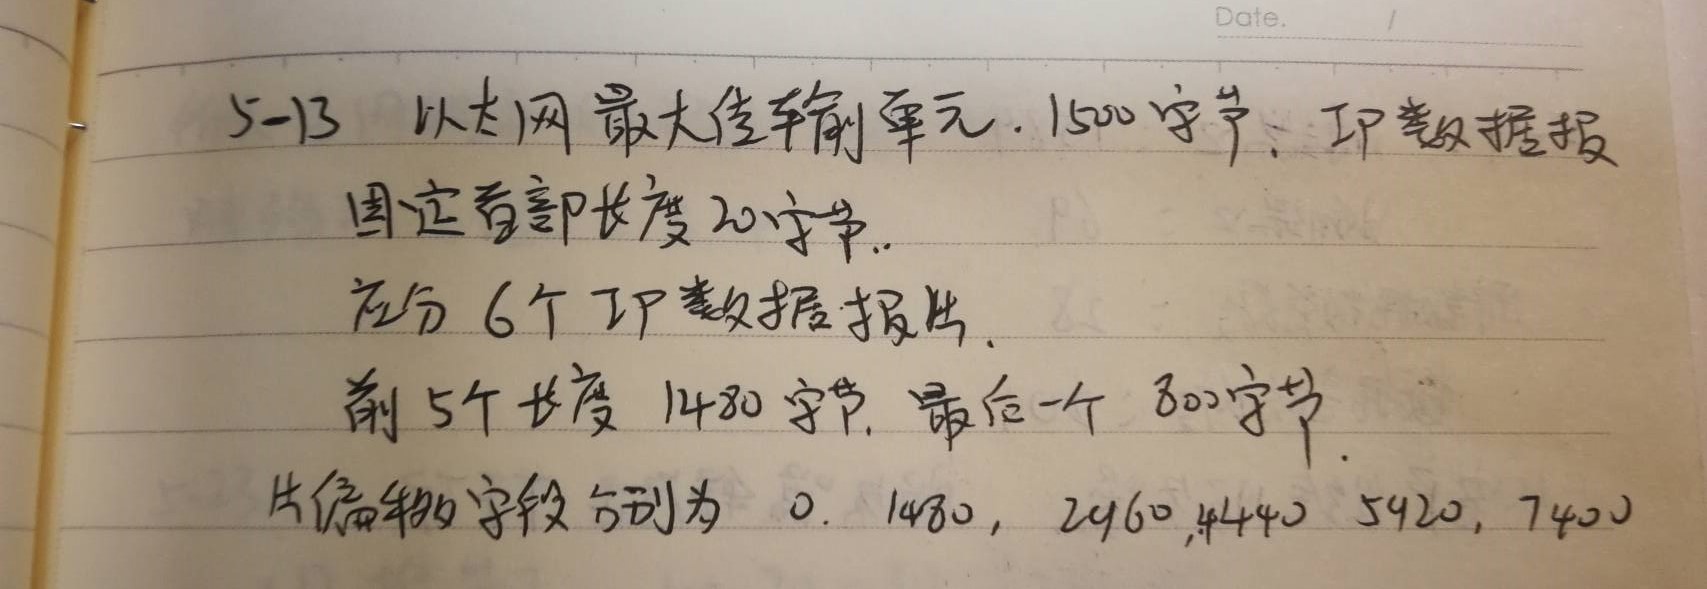 Date. /
5-13 以太网最大传输单元.1500字节. IP数据报
固定首部长度20字节..
应分 6个 IP数据报片.
前5个长度 1480字节. 最后一个 800字节.
片偏移的字段分别为 0. 1480, 2960,4440 5920, 7400